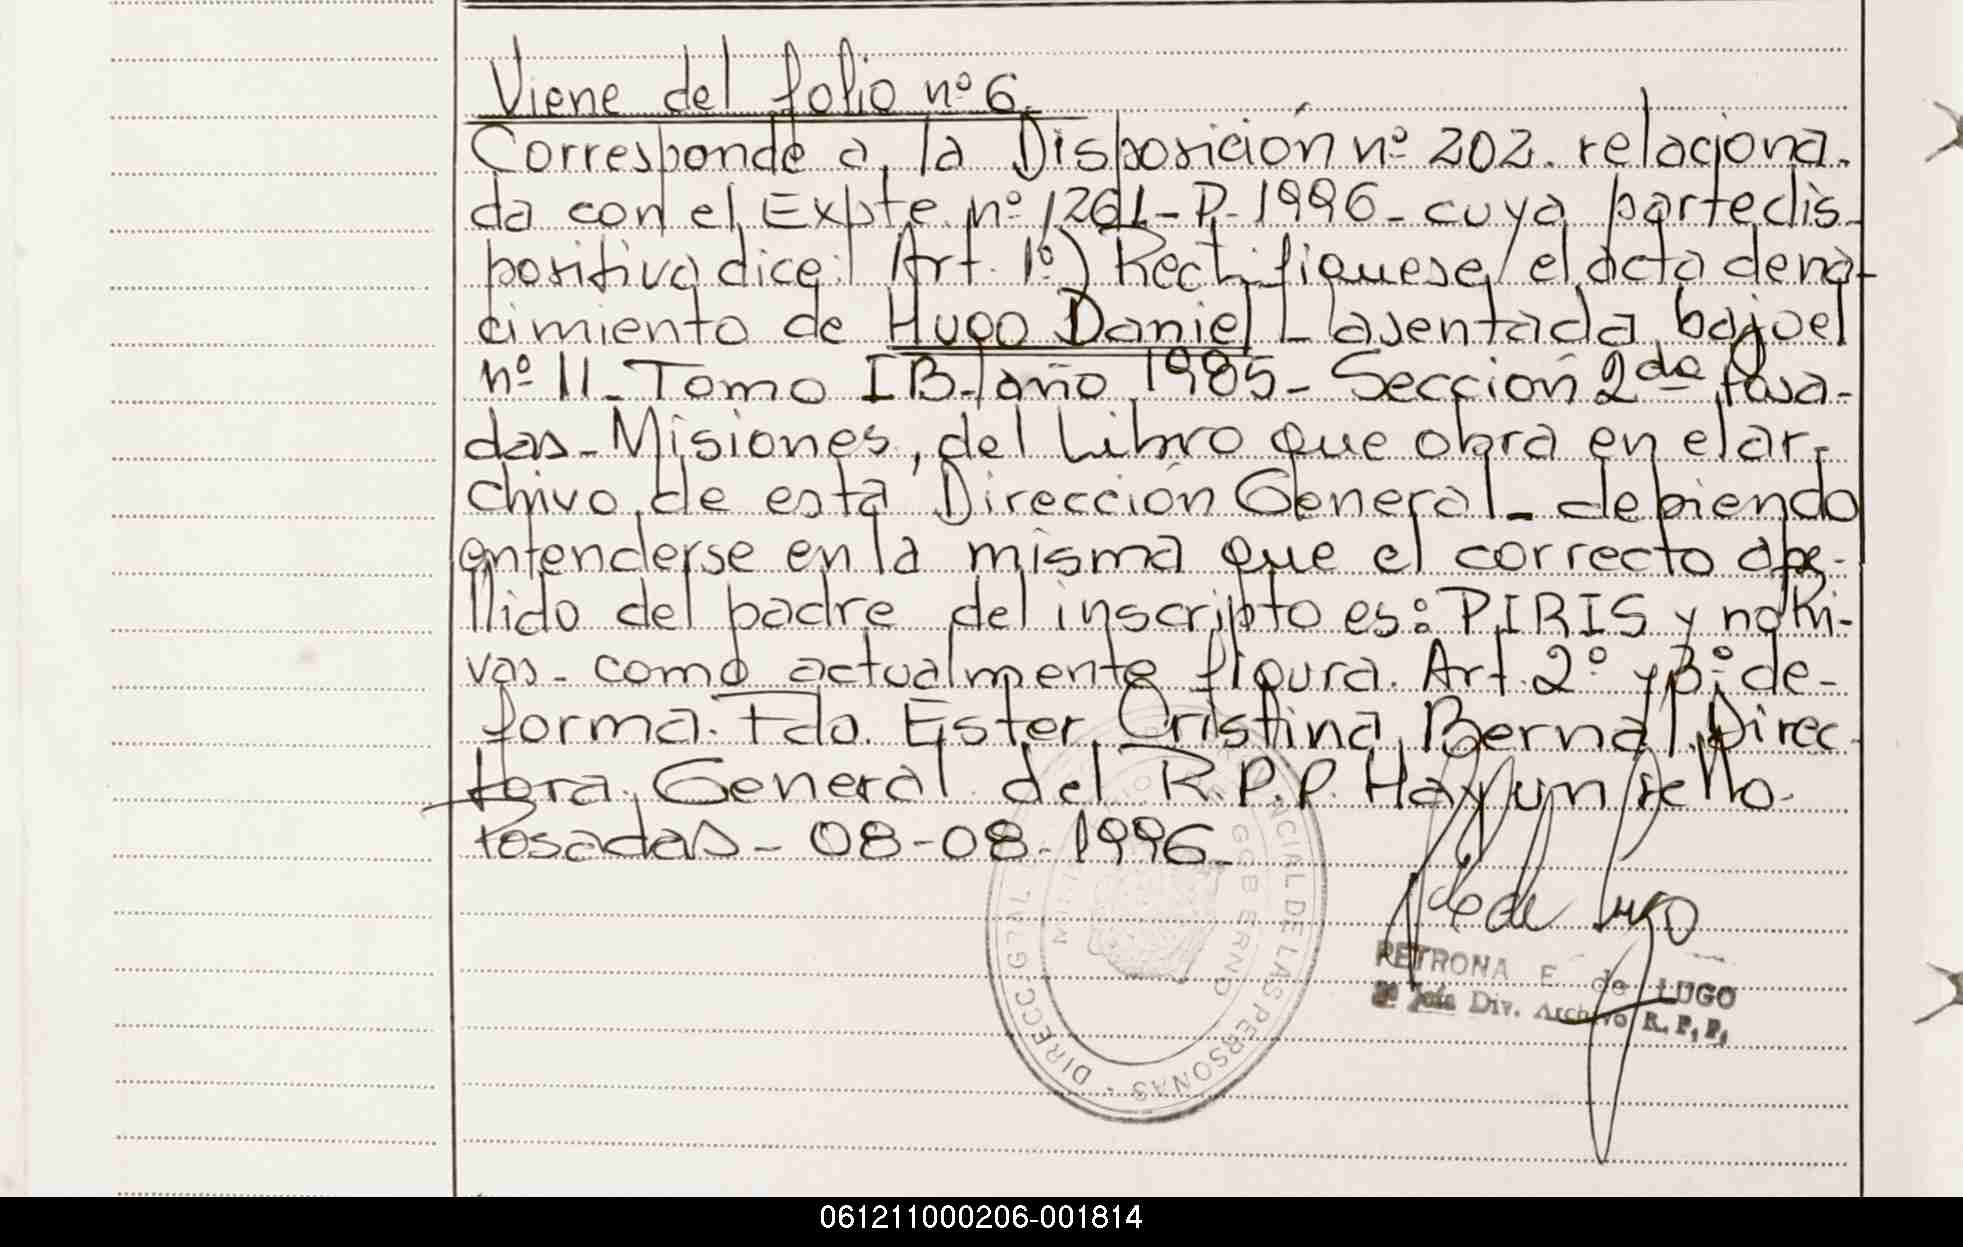 Viene del folio nº 6.
Corresponde a la Disposición nº 202. relaciona.
da con el Expte. nº 1261-P-1996- cuya parte dis-
positiva dice: Art. 1º) Rectifiquese el acta de na-
cimiento de Hugo Daniel - asentada bajo el
nº 11- Tomo I B- año 1985- Sección 2da Posa-
das- Misiones, del Libro que obra en el ar-
chivo de esta Dirección General- debiendo
entenderse en la misma que el correcto ape-
llido del padre del inscripto es: PIRIS y no Ri-
vas- como actualmente figura. Art. 2º y 3º de-
forma. Fdo. Ester Cristina Bernal. Direc-
tora General del R.P.P. Hay un sello.
Posadas- 08-08-1996-
DIRECC GRAL PROVINCIAL DE LAS PERSONAS
GOBIERNO
de Lugo
PETRONA E de LUGO
Jefa Div. Archivo R.P.P.
061211000206-001814